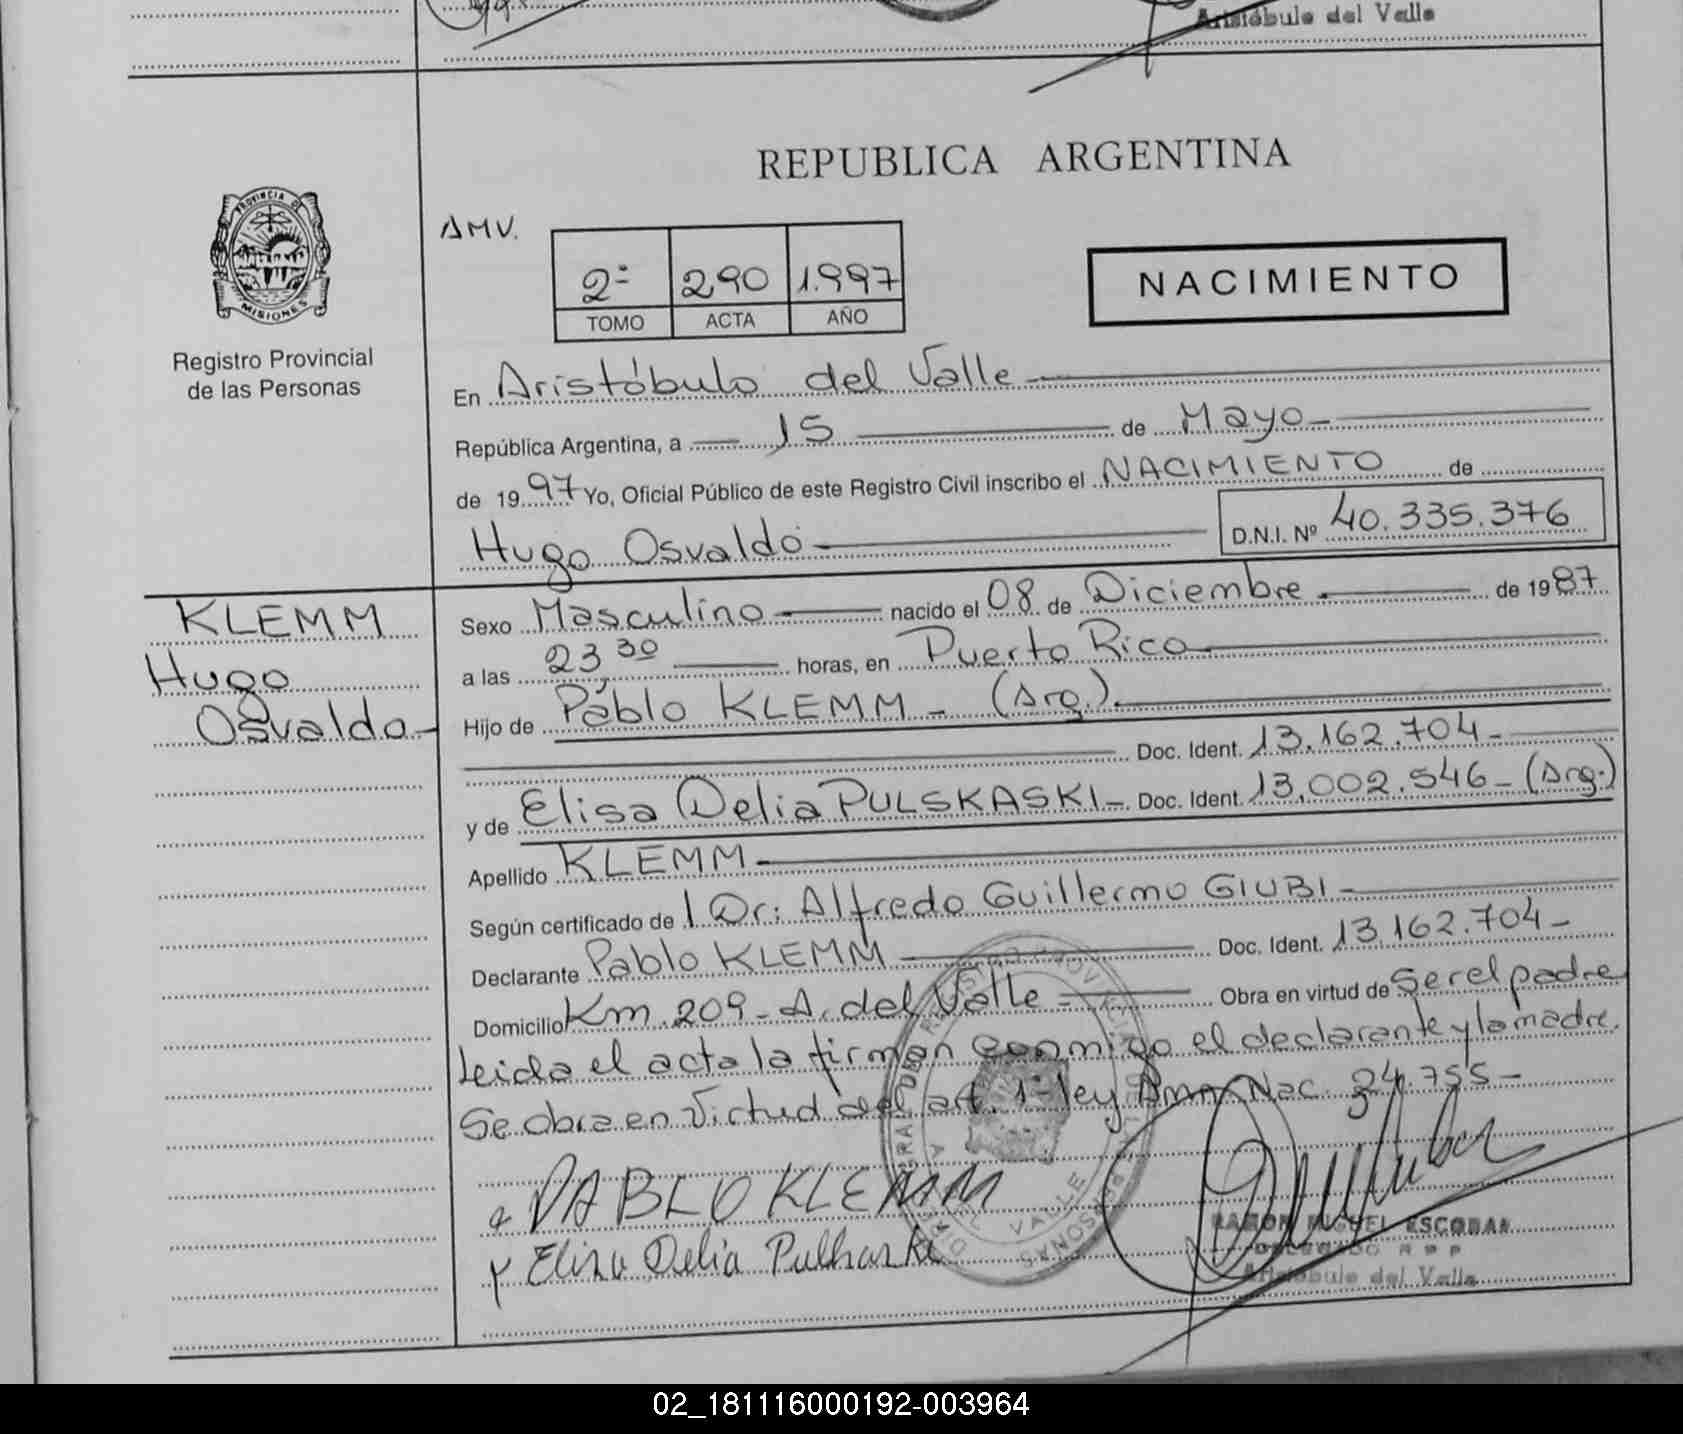 Aristóbulo del Valle
REPUBLICA ARGENTINA
PROVINCIA DE
MISIONES
Registro Provincial
de las Personas
AMV.
2º 290 1.997
TOMO ACTA AÑO
NACIMIENTO
En Aristóbulo del Valle
República Argentina, a 15 de Mayo
de 1997 Yo, Oficial Público de este Registro Civil inscribo el NACIMIENTO de
Hugo Osvaldo D.N.I. Nº 40.335.376
KLEMM
Hugo
Osvaldo
Sexo Masculino nacido el 08 de Diciembre de 1987
a las 23,30 horas, en Puerto Rico
Hijo de Pablo KLEMM - (Arg.)
Doc. Ident. 13.162.704
y de Elisa Delia PULSKASKI - Doc. Ident. 13.002.546 - (Arg.)
Apellido KLEMM
Según certificado de l Dr: Alfredo Guillermo GIUBI
Declarante Pablo KLEMM Doc. Ident. 13.162.704
Domicilio Km 209 - A. del Valle Obra en virtud de ser el padre
Leida el acta la firman conmigo el declarante y la madre.
Se obra en Virtud del art. 1º ley Amn. Nac. 24.755 -
PABLO KLEMM
y Elisa Delia
RAMON MIGUEL ESCOBAR
DELEGADO R P P
Aristóbulo del Valle
02_181116000192-003964